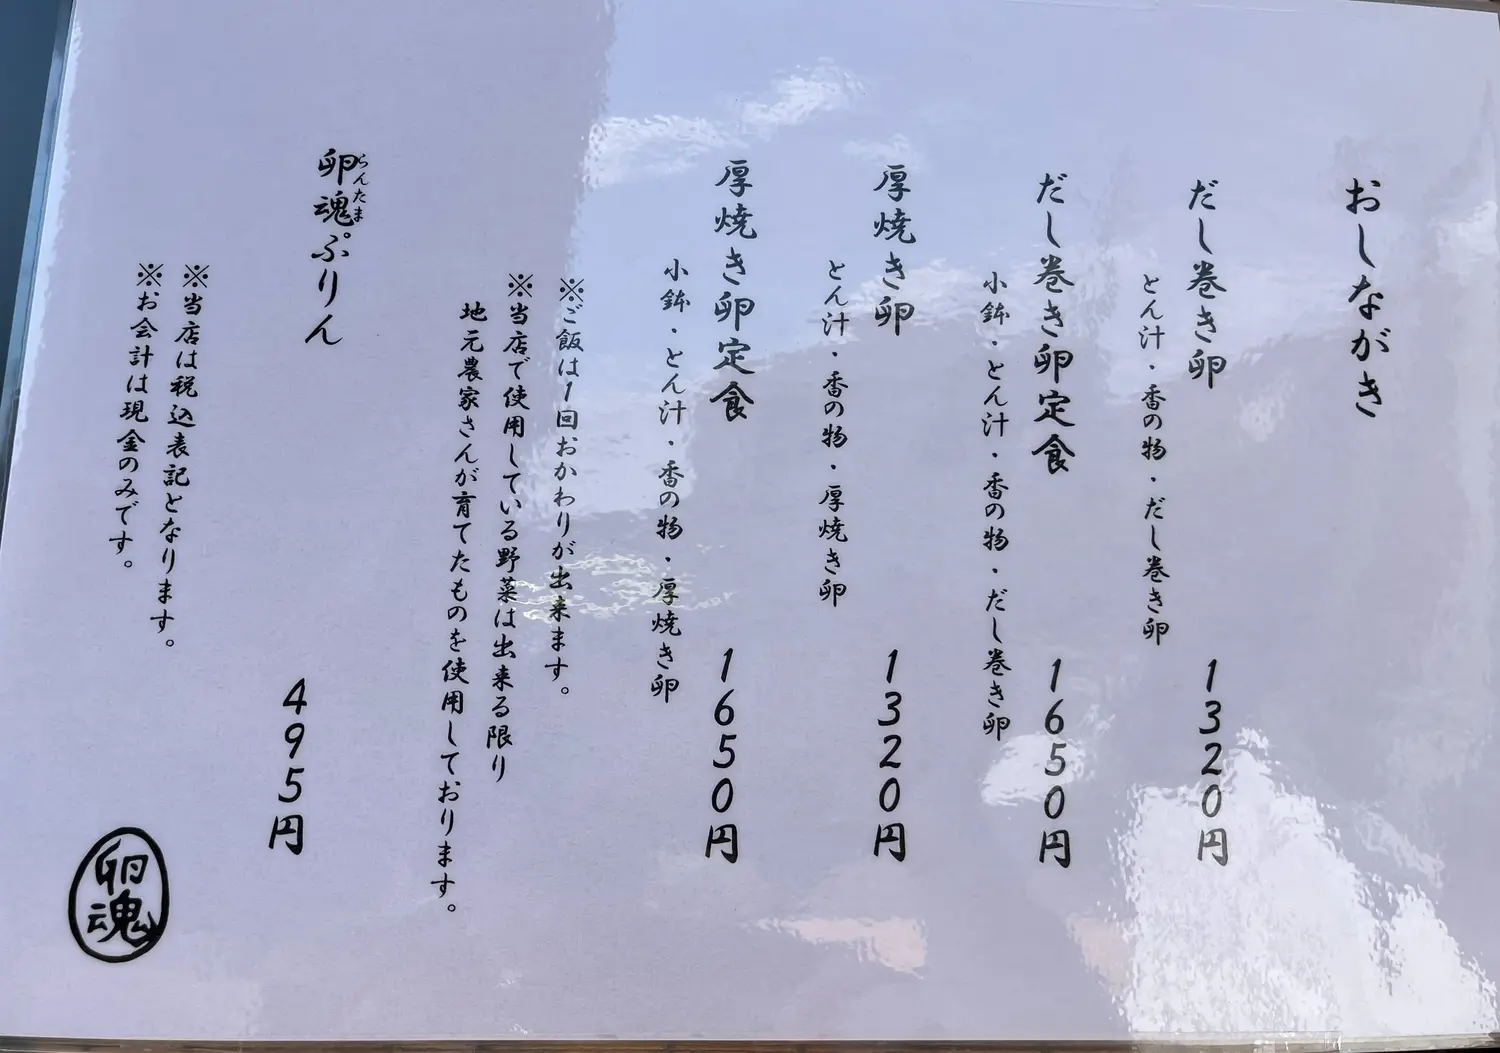 おしながき
だし巻き卵
とん汁・香の物・だし巻き卵
1320円
だし巻き卵定食
小鉢・とん汁・香の物・だし巻き卵
1650円
厚焼き卵
とん汁・香の物・厚焼き卵
1320円
厚焼き卵定食
小鉢・とん汁・香の物・厚焼き卵
1650円
※ご飯は1回おかわりが出来ます。
※当店で使用している野菜は出来る限り
地元農家さんが育てたものを使用しております。
らんたま
卵魂ぷりん
495円
※当店は税込表記となります。
※お会計は現金のみです。
卵魂